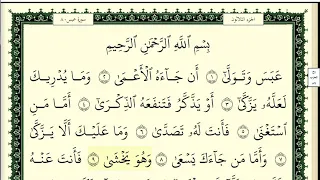 الجزء الثلاثون
سورة عبس ٨٠
بِسْمِ اللَّهِ الرَّحْمَٰنِ الرَّحِيمِ
عَبَسَ وَتَوَلَّىٰٓ ١ أَن جَآءَهُ ٱلْأَعْمَىٰ ٢ وَمَا يُدْرِيكَ
لَعَلَّهُۥ يَزَّكَّىٰٓ ٣ أَوْ يَذَّكَّرُ فَتَنفَعَهُ ٱلذِّكْرَىٰٓ ٤ أَمَّا مَنِ
ٱسْتَغْنَىٰ ٥ فَأَنتَ لَهُۥ تَصَدَّىٰ ٦ وَمَا عَلَيْكَ أَلَّا يَزَّكَّىٰ
٧ وَأَمَّا مَن جَآءَكَ يَسْعَىٰ ٨ وَهُوَ يَخْشَىٰ ٩ فَأَنتَ عَنْهُ